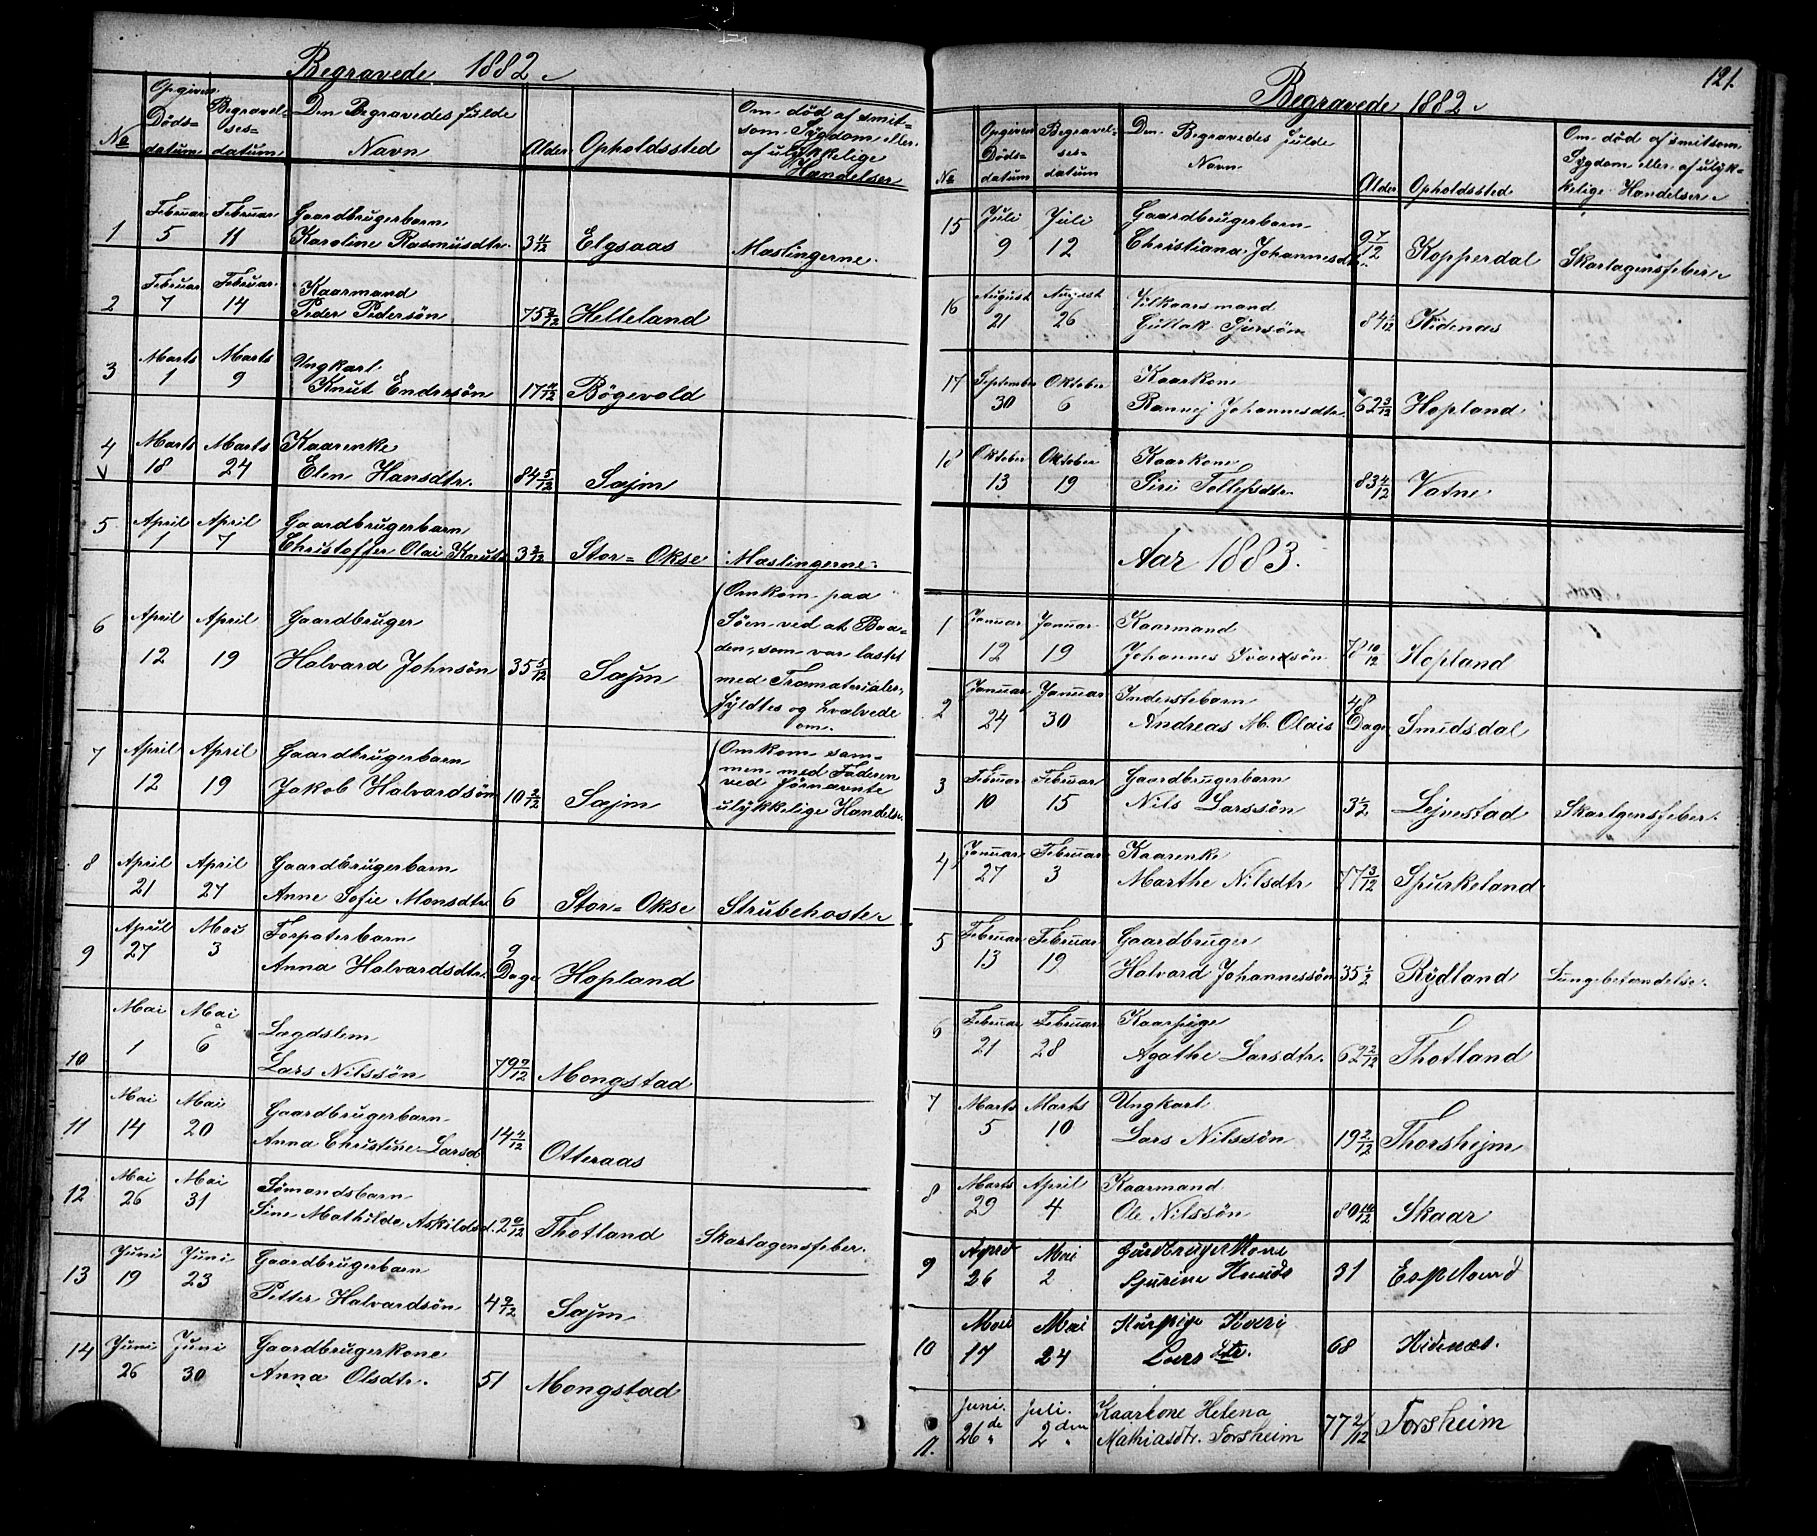 Begravede 1882
No Opgiven Døds-datum Begravel-ses-datum Den Begravedes fulde Navn Alder Opholdssted Om død af smit-som Sygdom eller af ulykkelige Handelser
1 Februar 5 Februar 11 Gaardbrugerbarn Karoline Rasmusdtr. 3 Elgsaas Mæslingerne.
2 Februar 7 Februar 14 Kaarmand Peder Pedersön 75 Helleland
3 Marts 1 Marts 9 Ungkarl Knut Endresön 17 Bögevold
4 Marts 18 Marts 24 Kaarenke Elen Hansdtr. 84 5/12 Sæjm
5 April 1 April 7 Gaardbrugerbarn Christoffer Olai Knuts 3 Stor=Okse Mæslingerne.
6 April 12 April 19 Gaardbruger Halvard Johnsön 35 5/12 Sæjm
Omkom paa
Söen ved at Baa-
den, som var lastet
med Træmaterialer,
fyldtes og hvalvede
om.
7 April 12 April 19 Gaardbrugerbarn Jakob Halvardsön 10 2/12 Sæjm
Omkom sam-
men med Faderen
ved förnævnte
ulykkelige Hændelse.
8 April 21 April 27 Gaardbrugerbarn Anne Sofie Monsdtr 6 Stor=Okse Strubehoste
9 April 27 Mai 3 Forpaterbarn Anna Halvardsdtr. 9 Dage Hopland
10 Mai 1 Mai 6 Lægdslem Lars Nilssön 79 Mongstad
11 Mai 14 Mai 20 Gaardbrugerbarn Anna Christine Larsd 14 Otteraas
12 Mai 26 Mai 31 Sömandsbarn Sine Mathilde Askildsd. 2 Thotland Skarlagensfeber.
13 Juni 19 Juni 23 Gaardbrugerbarn Petter Halvardsön 4 Sæjm
14 Juni 26 Juni 30 Gaardbrugerkone Anna Olsdtr. 51 Mongstad
121.
Begravede 1882
No Opgiven Døds-datum Begravel-ses-datum Den Begravedes fulde Navn Alder Opholdssted Om død af smitsom Sygdom eller af ulyk-kelige Handelser
15 Juli 9 Juli 12 Gaardbrugerbarn Christiana Johannesdtr. 9 7/12 Kopperdal Skarlagensfeber
16 August 21 August 26 Vilkaarsmand 84 Kidenas
17 September 30 Oktober 6 Kaarkone Rannej Johannesdtr. 62 Hopland
18 Oktober 13 Oktober 19 Kaarkone Siri Tollefsdtr. 83 4/12 Vatne
Aar 1883.
1 Januar 12 Januar 19 Kaarmand Johannes Ivarsön 78 10/12 Hopland
2 Januar 24 Januar 30 Inderstebarn Andreas M. Olais 48 Dage Smidsdal
3 Februar 10 Februar 15 Gaardbrugerbarn Nils Larssön 3 1/2 Lejvestad Skarlgensfeber.
4 Januar 27 Februar 3 Kaarenke Marthe Nilsdtr 77 3/12 Spurkeland
5 Februar 13 Februar 19 Gaardbruger Halvard Johannessön 35 1/2 Rydland Lungebetændelse.
6 Februar 21 Februar 28 Kaarpige Agathe Larsdtr. 62 2/12 Thotland
7 Marts 5 Marts 10 Ungkarl Lars Nilssön 19 2/12 Thorshejm
8 Marts 29 April 4 Kaarmand Ole Nilssön 80 10/12 Skaar
9 April 26 Mai 2 Gårdbrugerkone Sjurine Knuds 31 Espeland
10 Mai 17 Mai 24 Kari Lars dtr. 68 Kidenæs.
11. Juni. 26de Juli. 2den Kaarkone Helena Mathiasdtr. Torsheim 77 2/12 Torsheim